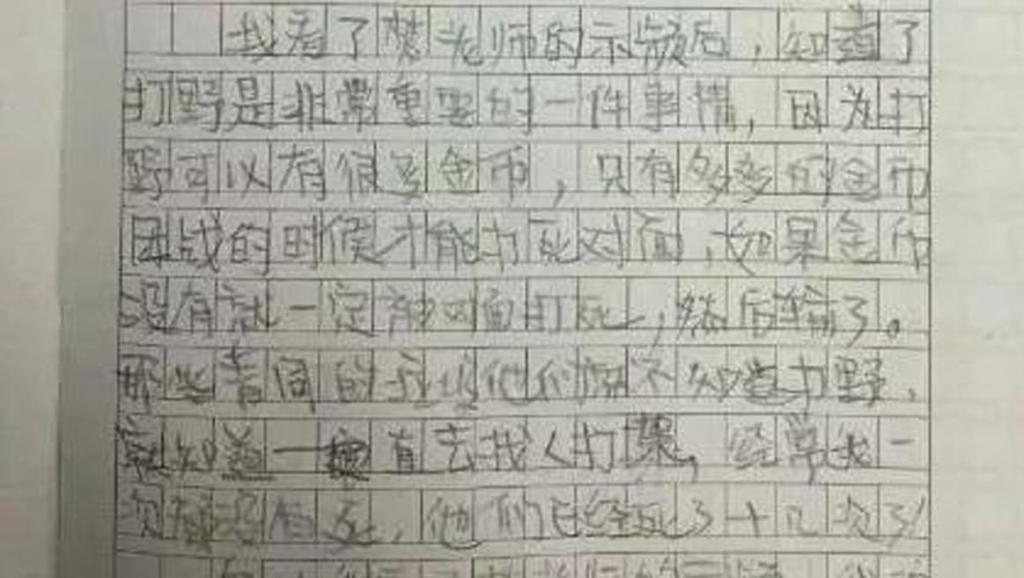 我看了樊老师的示频后，知道了
打野是非常重要的一件事情，因为打
野可以有很多金币，只有多多的金币
团战的时候才能打死对面，如果金币
没有就一定被对面打死，然后输了。
那些 同的 他们 不知道打野，
就知道一 直去找人打架，经常我一
次 没有死，他们已经死了十几次了！